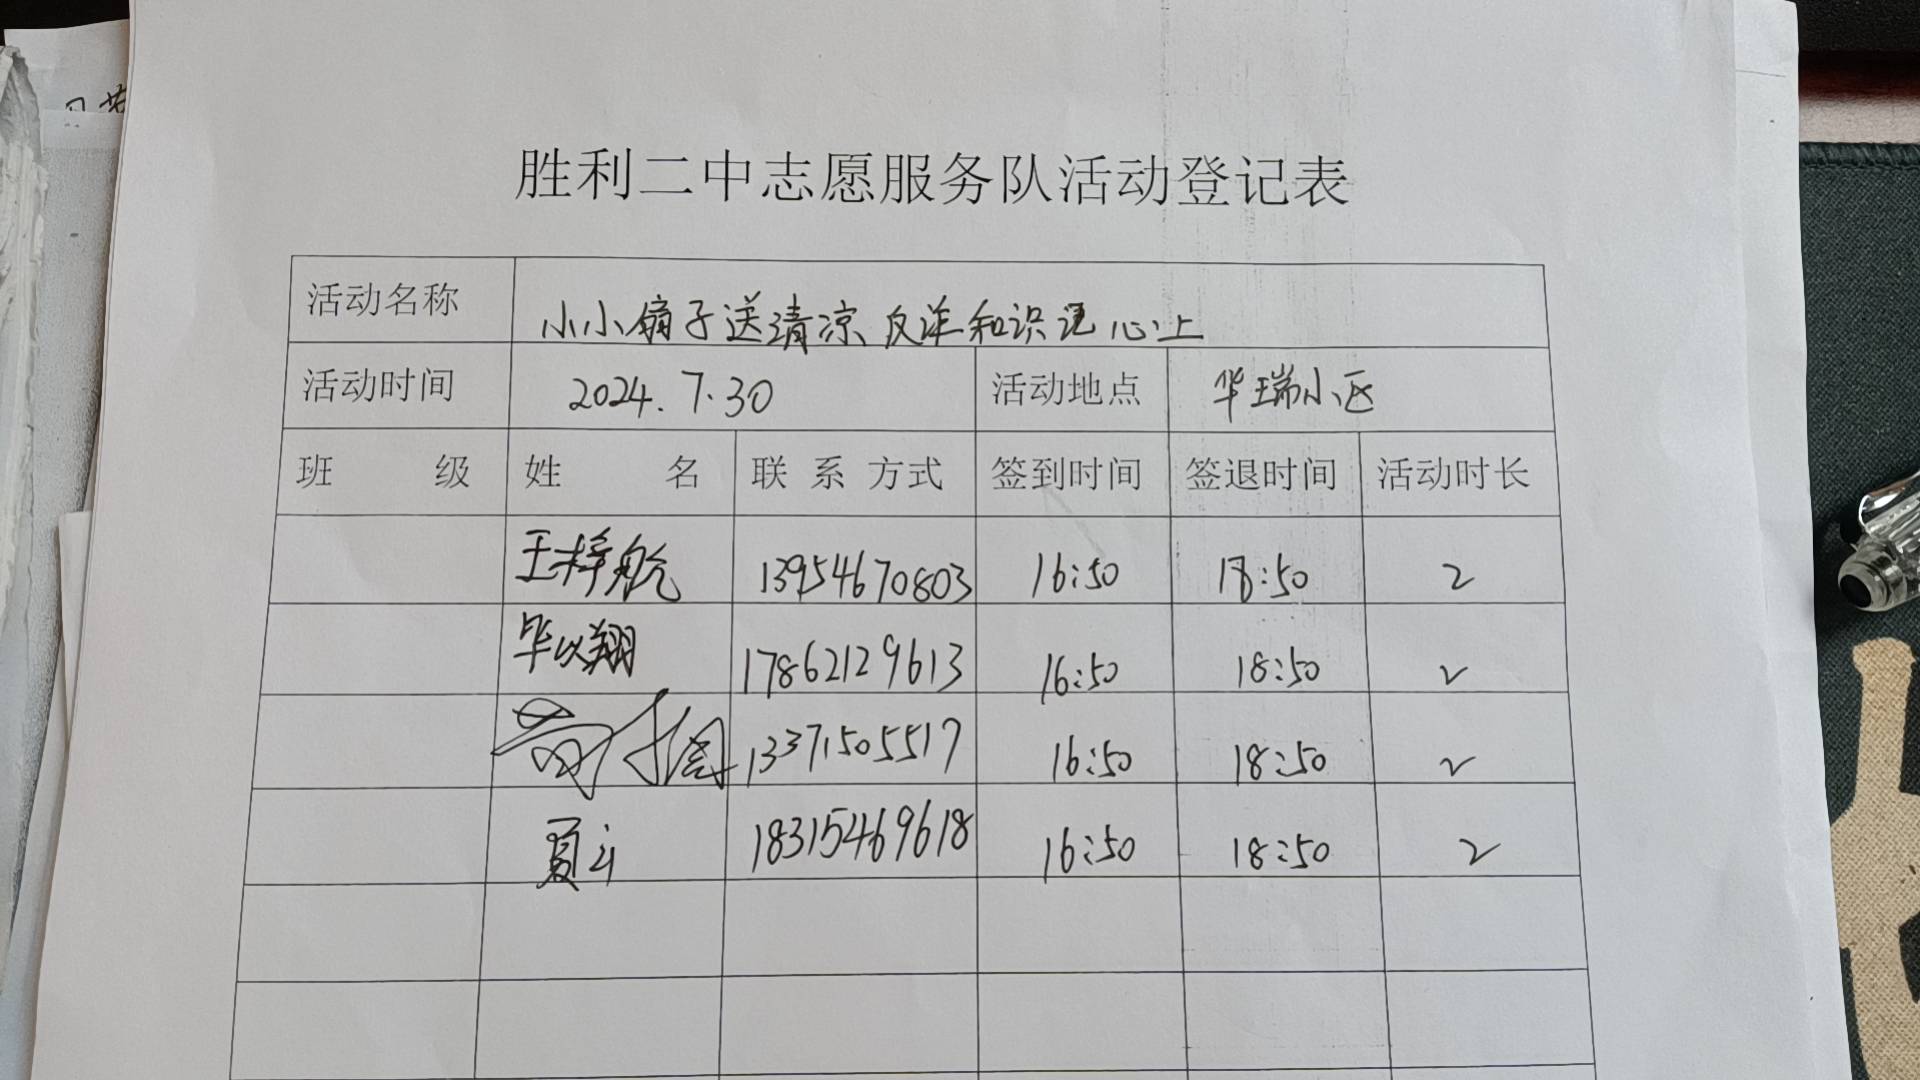 胜利二中志愿服务队活动登记表
活动名称 小小扇子送清凉 反诈知识记心上
活动时间 2024.7.30 活动地点 华瑞小区
班 级 姓 名 联 系 方式 签到时间 签退时间 活动时长
王梓航 13954670803 16:50 18:50 2
毕以翔 17862129613 16:50 18:50 2
13371505517 16:50 18:50 2
18315469618 16:50 18:50 2